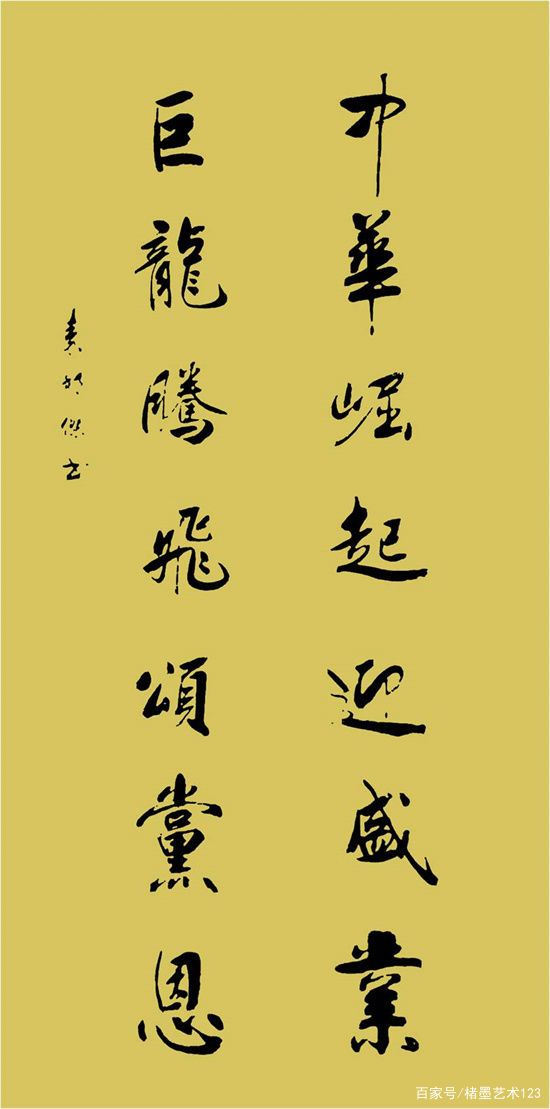 中華崛起迎盛業
巨龍騰飛頌黨恩
傑书
百家号/楮墨艺术123